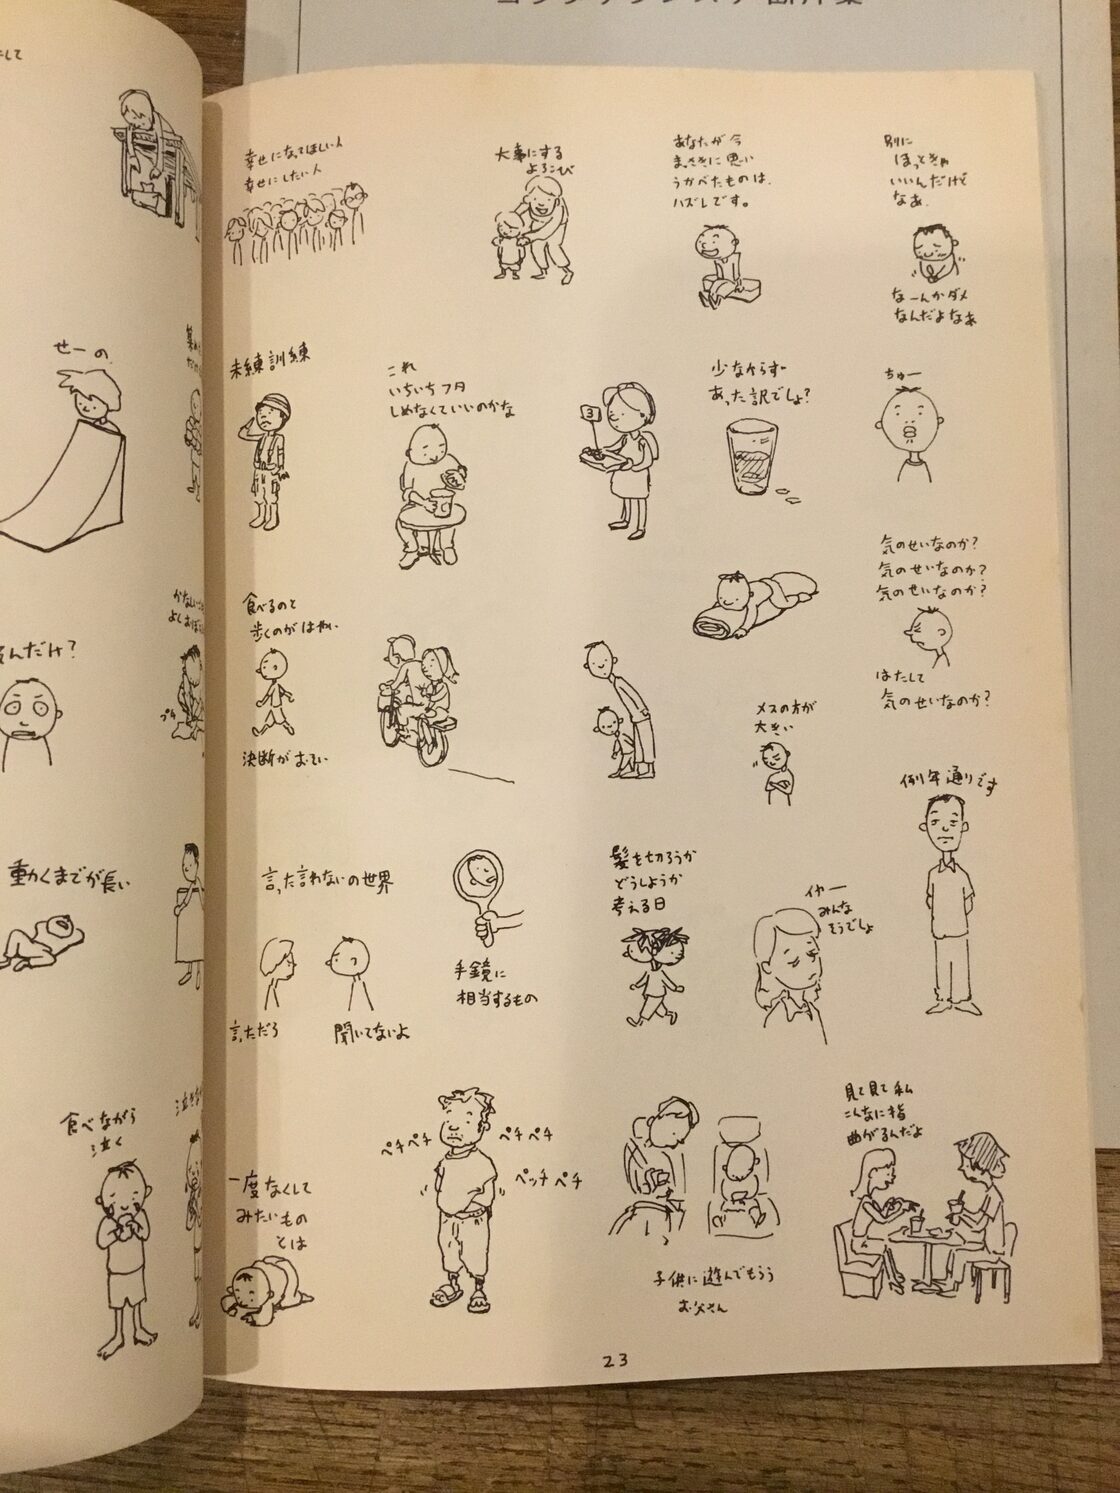 して
せーの
んだけ?
動くまでが長い
食べながら
泣く
幸せになってほしい人
幸せにしたい人
大事にする
よろこび
あなたが今
まっさきに思い
うかべたものは、
ハズレです。
別に
ほっときゃ
いいんだけど
なあ、
なーんかダメ
なんだよなあ
未練訓練
これ
いちいちフタ
しめなくていいのかな
3
少なからず
あった訳でしょ?
ちゅー
食べるのと
歩くのがはやい
決断がおそい
気のせいなのか?
気のせいなのか?
気のせいなのか?
はたして
気のせいなのか?
メスの方が
大きい
例年通りです
言った言わないの世界
言っただろ
聞いてないよ
手鏡に
相当するもの
髪を切ろうか
どうしようか
考える日
イヤー
みんな
そうでしょ
一度なくして
みたいもの
とは
ペチペチ
ペチペチ
ペッチペチ
子供に遊んでもらう
お父さん
見て見て私
こんなに指
曲がるんだよ
23